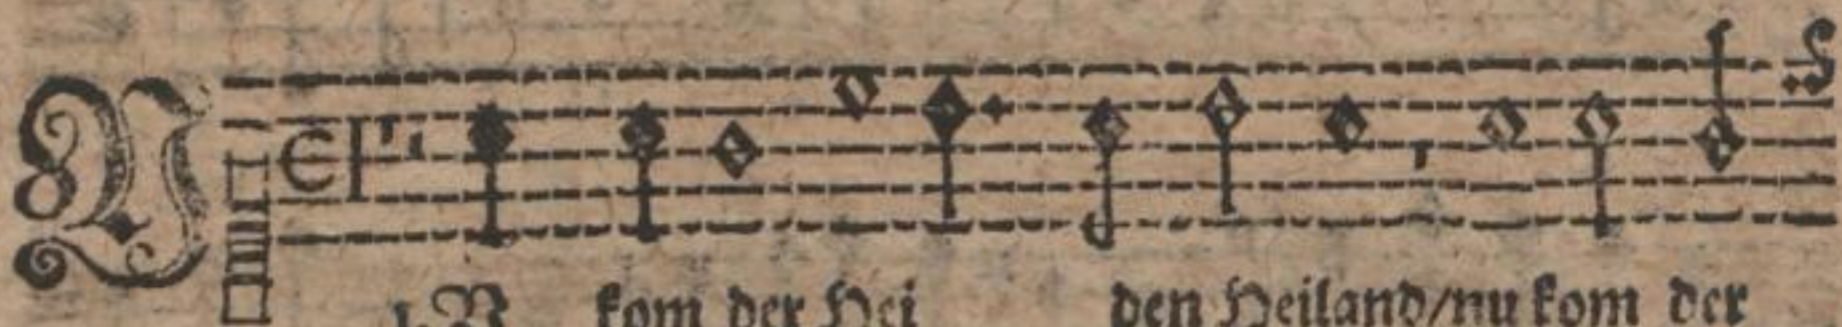 N
1. N kom der Hei den Heiland/nu kom der